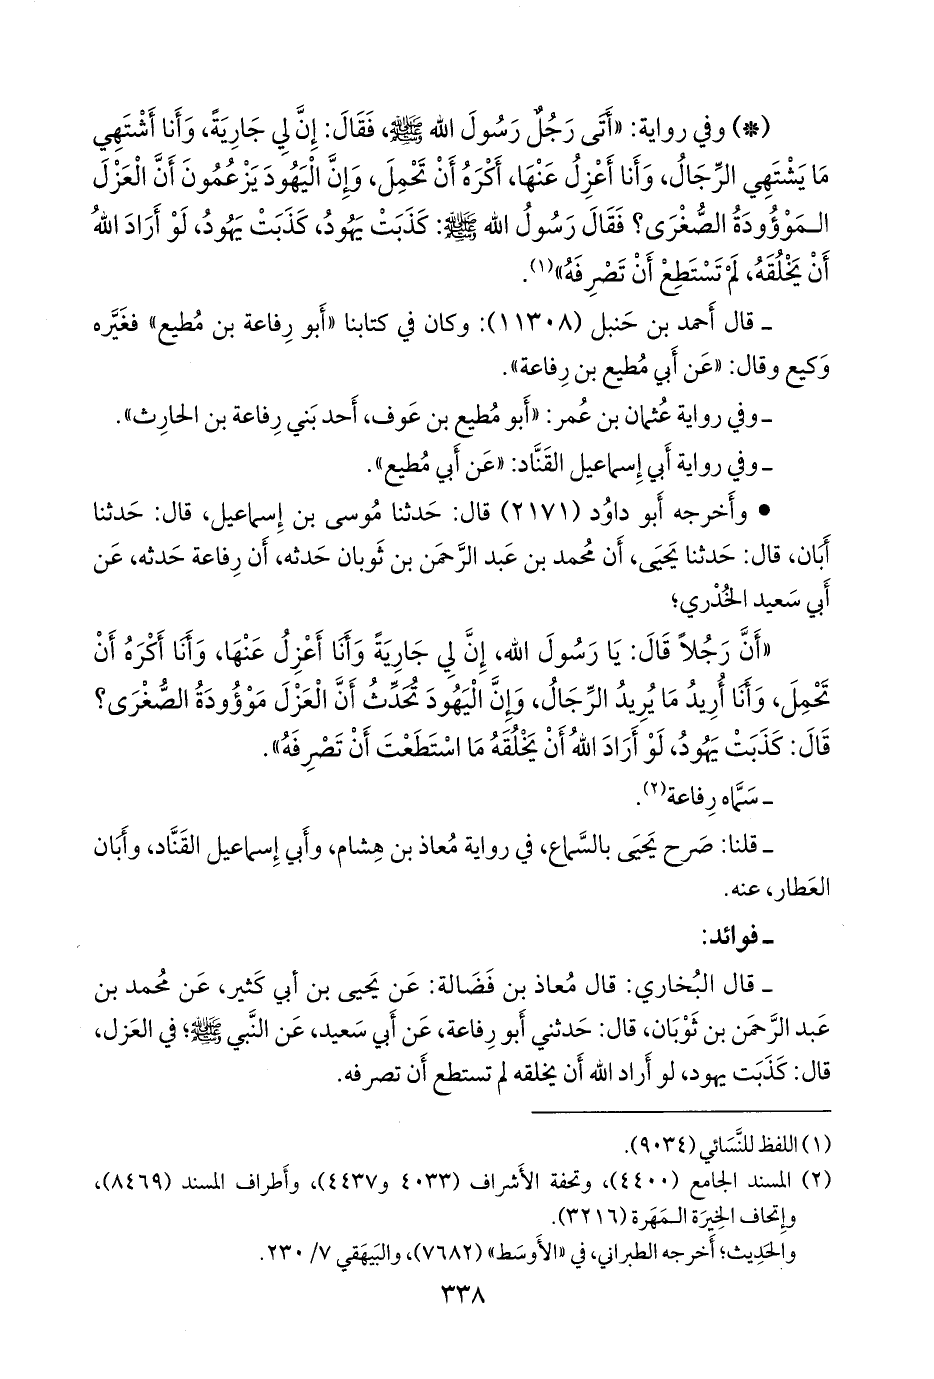 (*) وفي رواية: «أَتَى رَجُلٌ رَسُولَ الله ﷺ، فَقَالَ: إِنَّ لِي جَارِيَةً، وَأَنا أَشْتَهِي
مَا يَشْتَهِي الرِّجَالُ، وَأَنا أَعْزِلُ عَنْهَا، أَكْرَهُ أَنْ تَحْمِلَ، وَإِنَّ الْيَهُودَ يَزْعُمُونَ أَنَّ الْعَزْلَ
الـمَوْؤُودَةُ الصُّغْرَى؟ فَقَالَ رَسُولُ الله ﷺ: كَذَبَتْ يَهُودُ، كَذَبَتْ يَهُودُ، لَوْ أَرَادَ اللهُ
أَنْ يَخْلُقَهُ، لَمْ تَسْتَطِعْ أَنْ تَصْرِفَهُ»(١).
ـ قال أَحمد بن حَنبل (١١٣٠٨): وكان في كتابنا «أَبو رِفاعة بن مُطيع» فغَيَّره
وَكيع وقال: «عَن أَبي مُطيع بن رِفاعة».
ـ وفي رواية عُثمان بن عُمر: «أَبو مُطيع بن عَوف، أَحد بَني رِفاعة بن الحارِث».
ـ وفي رواية أَبي إِسماعيل القَنَّاد: «عَن أَبي مُطيع».
• وأَخرجه أَبو داوُد (٢١٧١) قال: حَدثنا مُوسى بن إِسماعيل، قال: حَدثنا
أَبَان، قال: حَدثنا يَحيَى، أَن مُحمد بن عَبد الرَّحمَن بن ثَوبان حَدثه، أَن رِفاعة حَدثه، عَن
أَبي سَعيد الخُدْري؛
«أَنَّ رَجُلاً قَالَ: يَا رَسُولَ الله، إِنَّ لِي جَارِيَةً وَأَنَا أَعْزِلُ عَنْهَا، وَأَنَا أَكْرَهُ أَنْ
تَحْمِلَ، وَأَنَا أُرِيدُ مَا يُرِيدُ الرِّجَالُ، وَإِنَّ الْيَهُودَ تُحَدِّثُ أَنَّ الْعَزْلَ مَوْؤُودَةُ الصُّغْرَى؟
قَالَ: كَذَبَتْ يَهُودُ، لَوْ أَرَادَ اللهُ أَنْ يَخْلُقَهُ مَا اسْتَطَعْتَ أَنْ تَصْرِفَهُ».
ـ سَمَّاه رِفاعة(٢).
ـ قلنا: صَرح يَحيَى بالسَّماع، في رواية مُعاذ بن هِشام، وأَبي إِسماعيل القَنَّاد، وأَبَان
العَطار، عنه.
ـ فوائد:
ـ قال البُخاري: قال مُعاذ بن فَضَالة: عَن يَحيى بن أَبي كَثير، عَن مُحمد بن
عَبد الرَّحمَن بن ثَوْبَان، قال: حَدثني أَبو رِفاعة، عَن أَبي سَعيد، عَن النَّبي ﷺ؛ في العَزل،
قال: كَذَبَت يهود، لو أَراد الله أَن يخلقه لم تستطع أَن تصرفه.
(١) اللفظ للنَّسَائي (٩٠٣٤).
(٢) المسند الجامع (٤٤٠٠)، وتحفة الأَشراف (٤٠٣٣ و٤٤٣٧)، وأَطراف المسند (٨٤٦٩)،
وإِتحاف الخِيرَة الـمَهَرة (٣٢١٦).
والحَدِيث؛ أَخرجه الطبراني، في «الأَوسَط» (٧٦٨٢)، والبَيهَقي ٧/ ٢٣٠.
٣٣٨